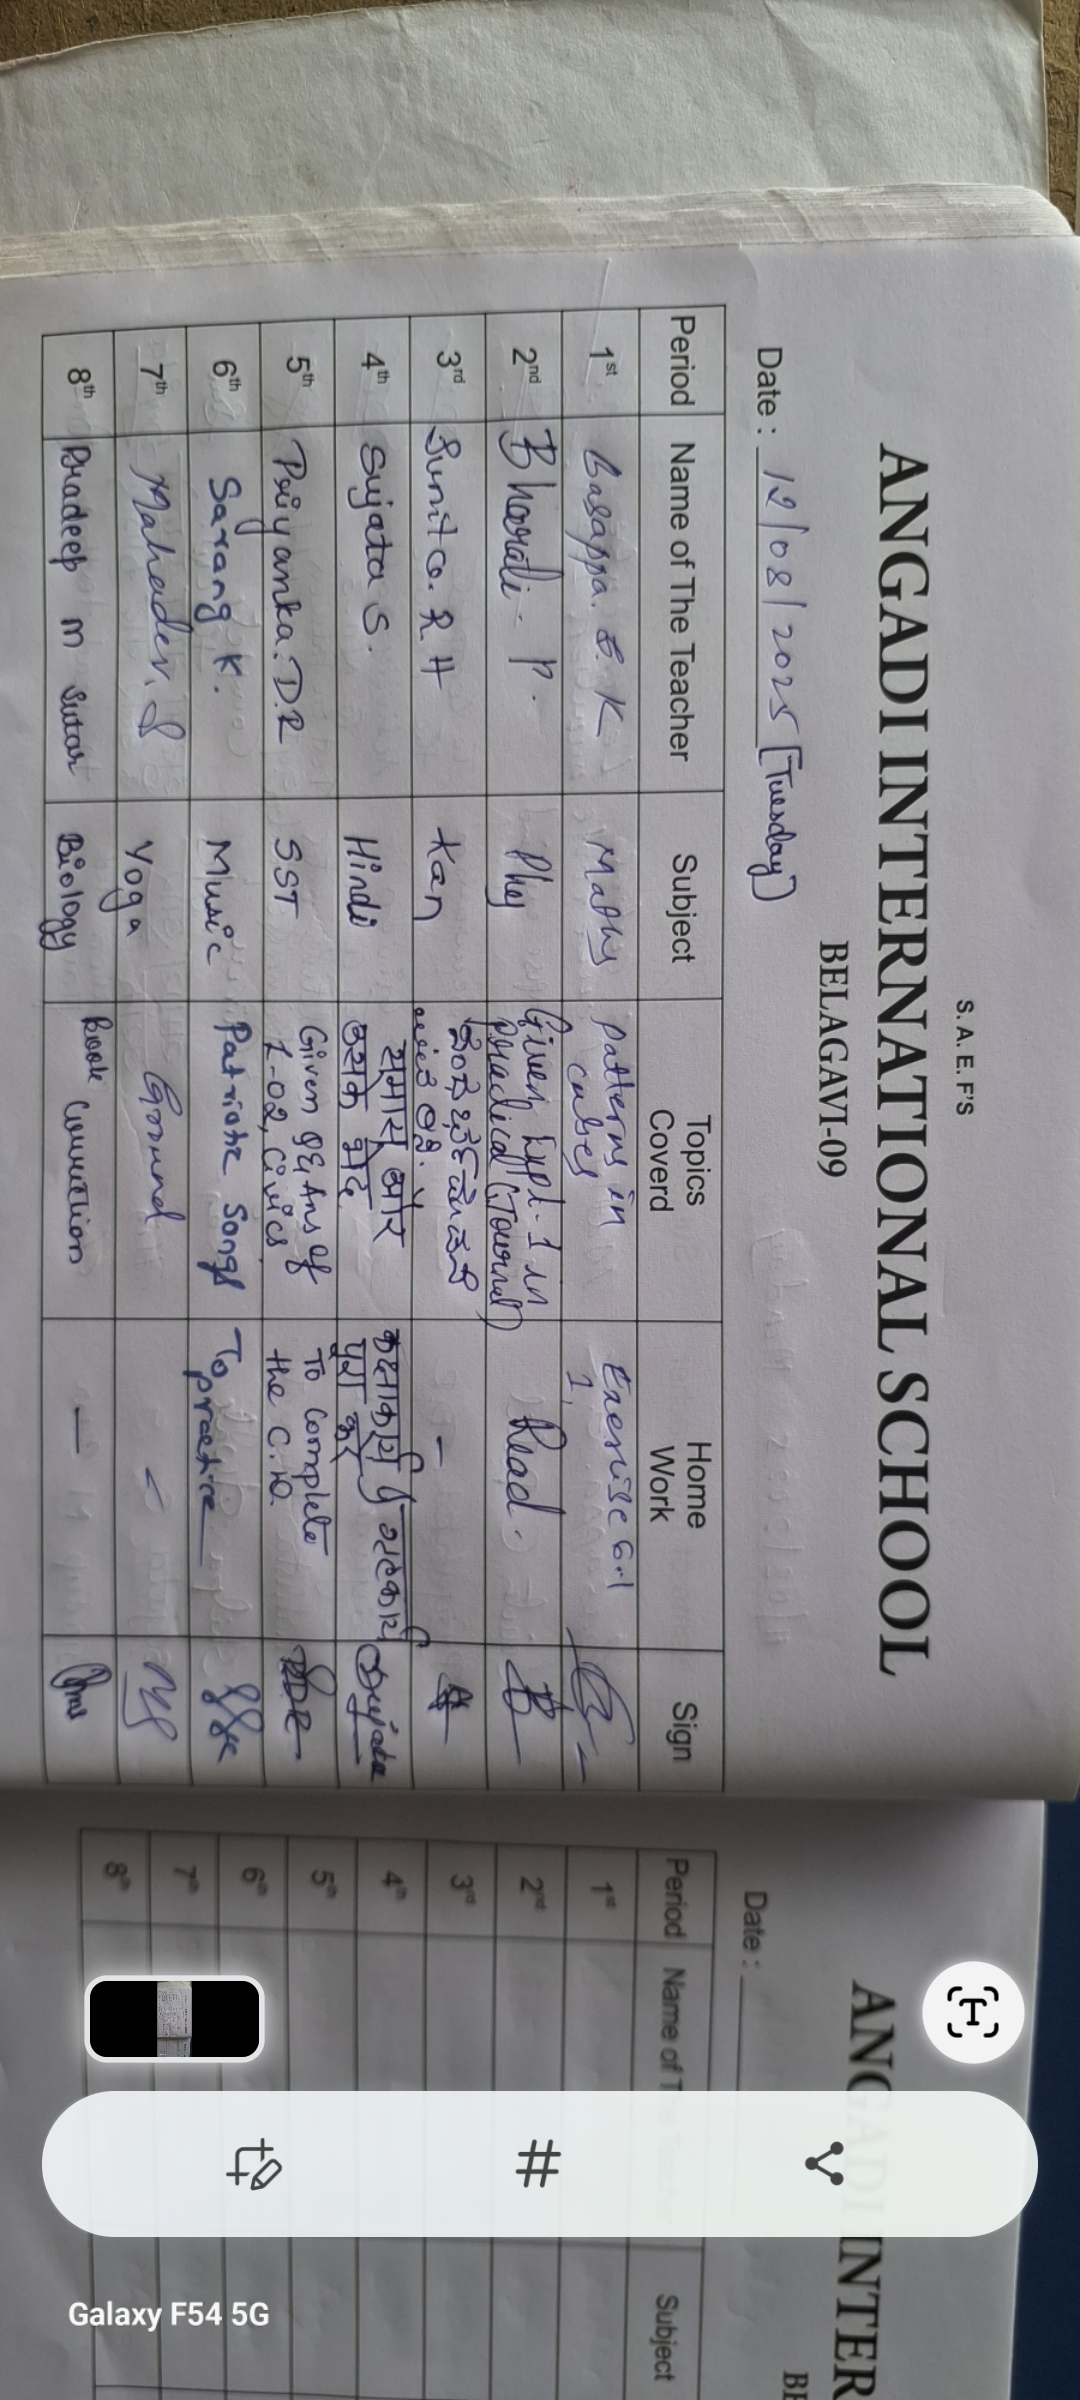 S. A. E. F'S
ANGADI INTERNATIONAL SCHOOL
BELAGAVI-09
Date : 12/08/2025 [Tuesday]
Period Name of The Teacher Subject Topics Coverd Home Work Sign
1st Basappa. B. K Maths Patterns in cubes Exercise 6.1 1,
2nd Bharati. P. Phy Given Expt-1 in practical (Journal) Read.
3rd Sunita. R H Kan -
4th Sujata S. Hindi समास और उसके भेद कक्षाकार्य / गृहकार्य पूरा करें Sujata
5th Priyanka. D.R SST Given Q&Ans of L-02, Civics. To complete the C.W. PDR
6th Sarang K. Music Patriotic Songs To practice
7th Mahadev. S Yoga Ground -
8th Pradeep M Sutar Biology Book Correction -
ANGADI INTER
BE
Date :
Period Name of The Teacher Subject
1st
2nd
3rd
4th
5th
6th
7th
8th
Galaxy F54 5G